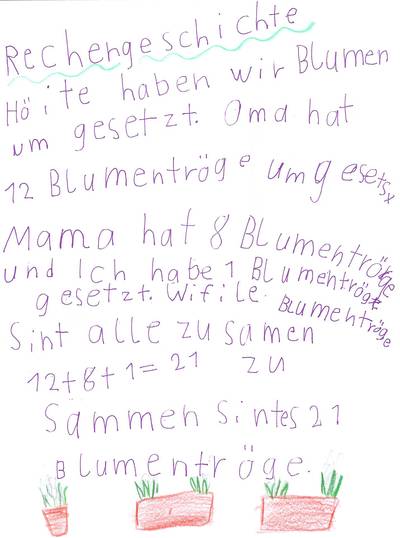 Rechengeschichte
Höite haben wir Blumen
um gesetzt. Oma hat
12 Blumentröge umgesetst
Mama hat 8 Blumentröge
und Ich habe 1 Blumentröge
gesetzt. Wifile Blumentröge
Sint alle zu samen
12+8+1=21 zu
Sammen Sintes 21
Blumentröge.